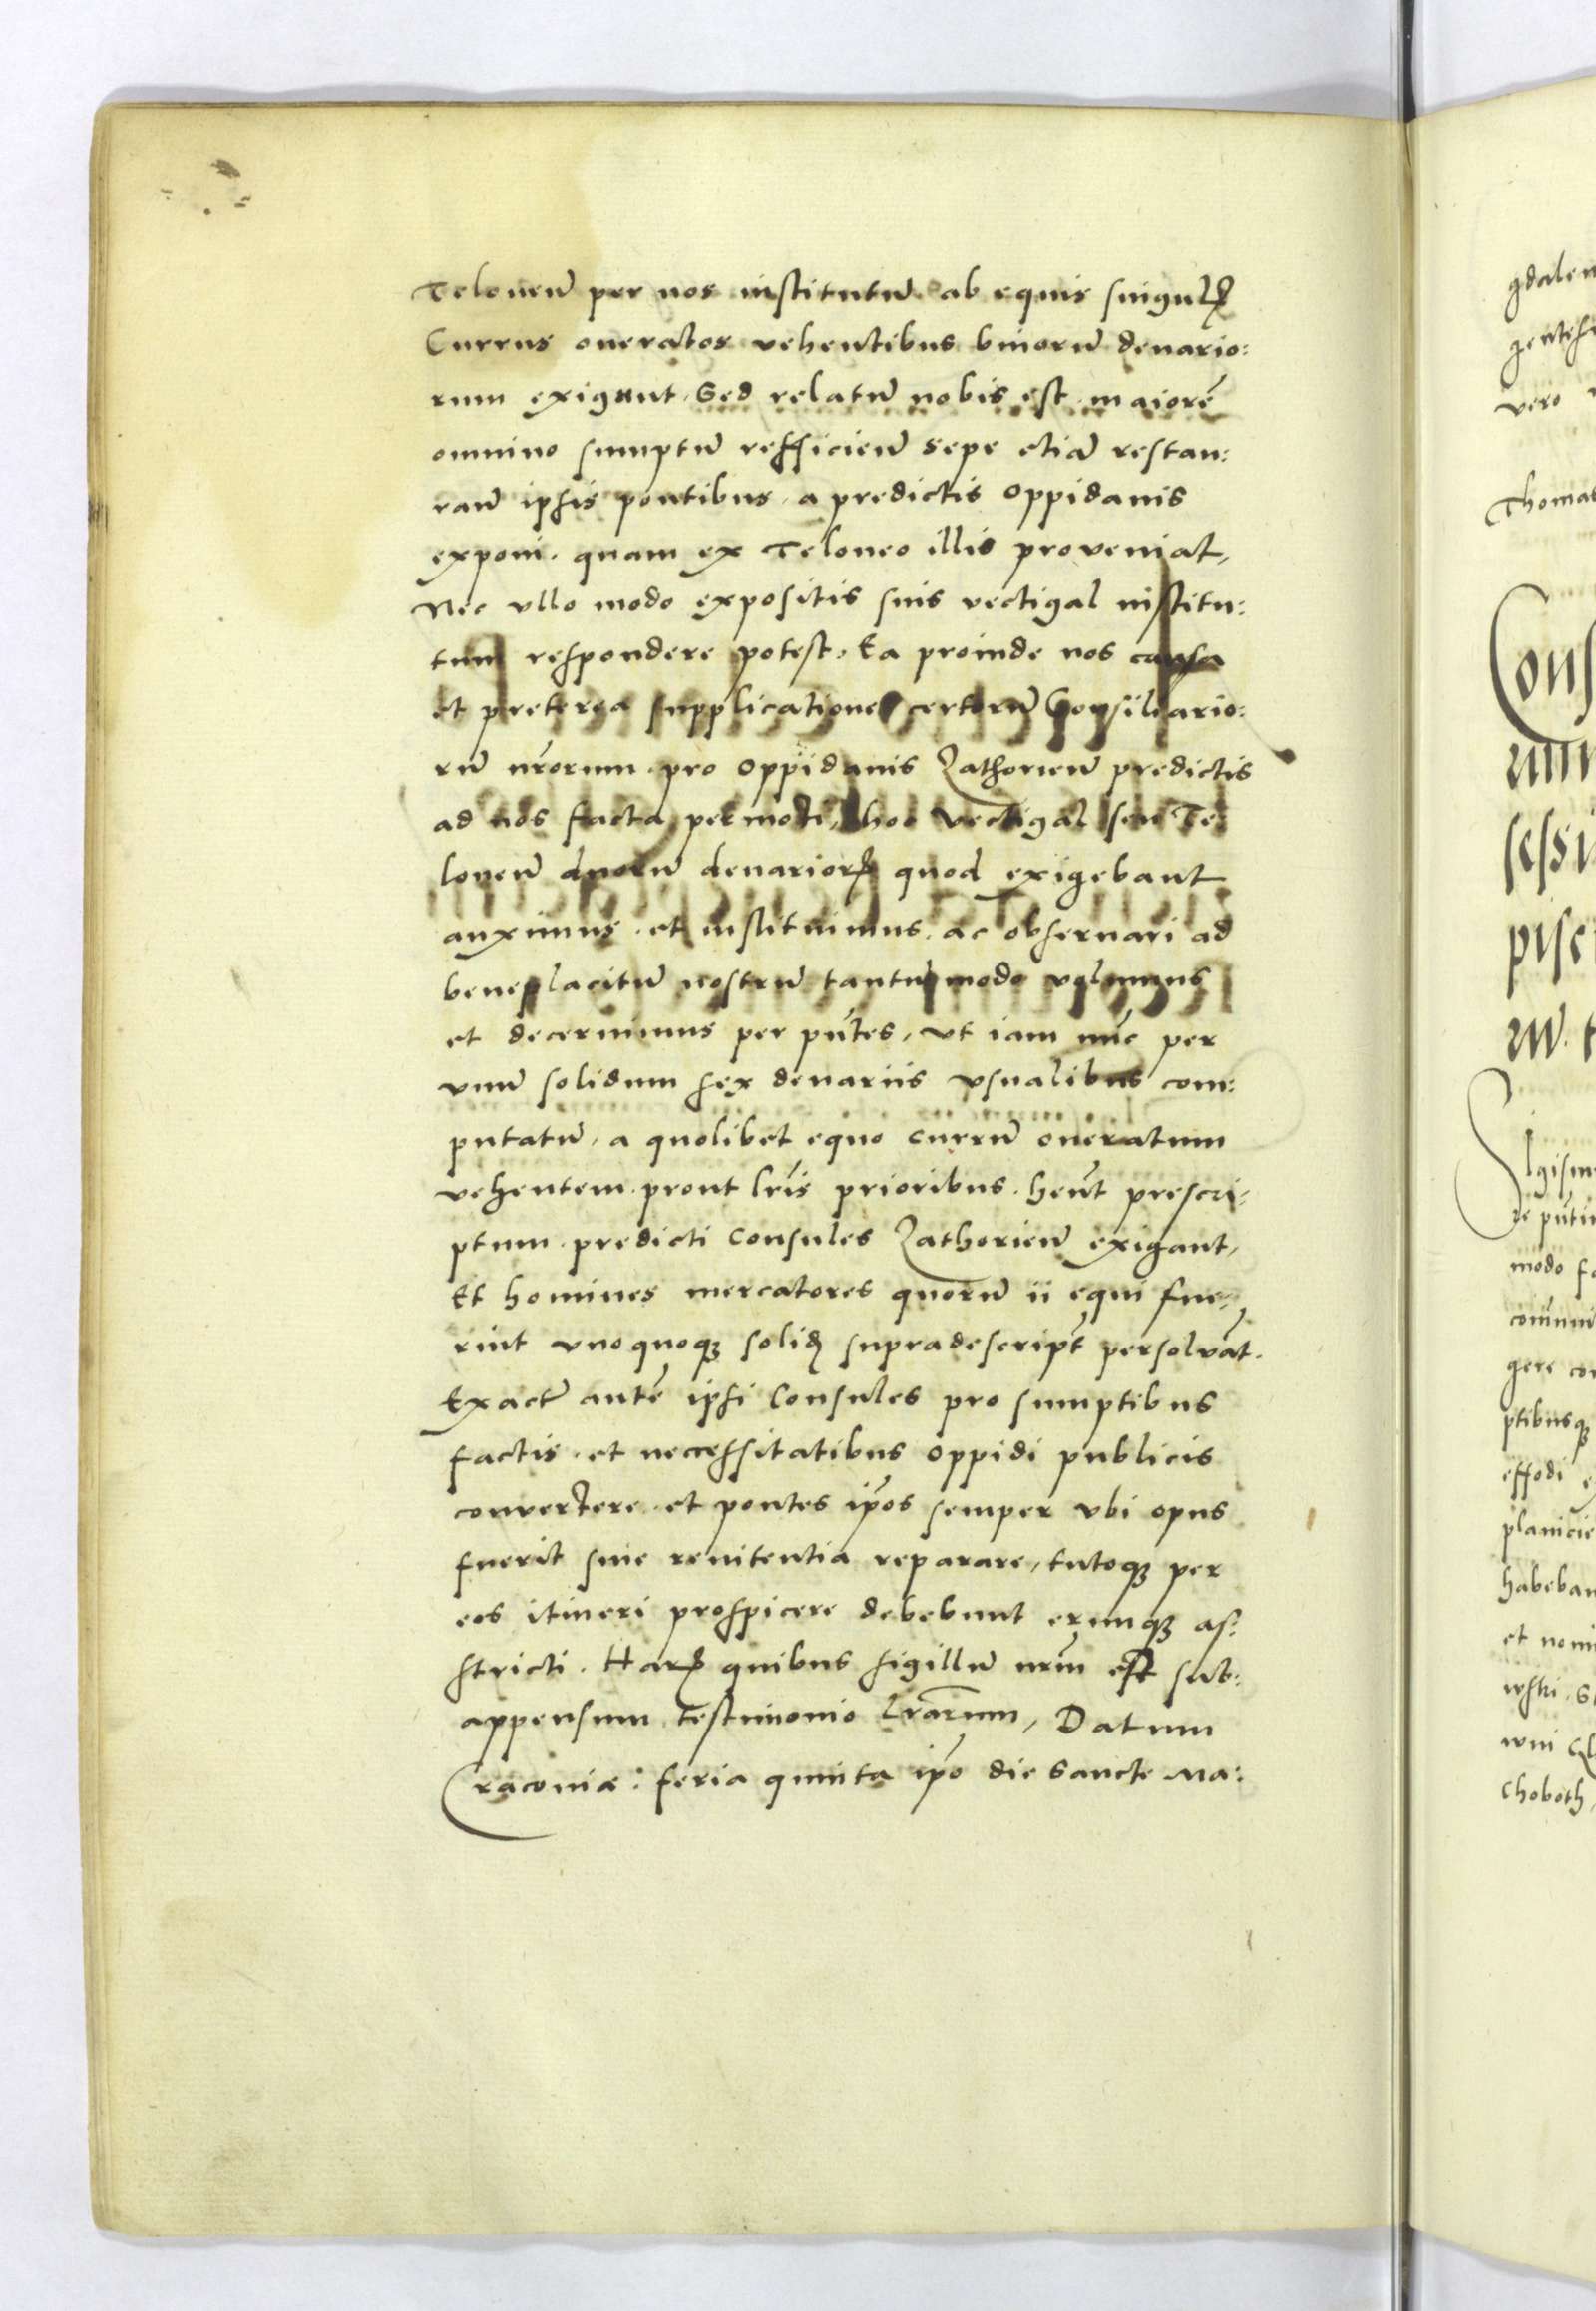 Teloneū per nos institutū ab equis singulꝝ
Currus oneratos vehentibus binorū denario:
rum exigunt. Sed relatū nobis est maiorē
omnino sumptū refficieñ sepe etiā restau:
rañ ipsis pontibus, a predictis oppidanis
exponi. quam ex Teloneo illis proveniat,
Nec vllo modo expositis suis vectigal institu:
tum respondere potest. Ea proinde nos causa
et preterea supplicatione certorū Consiliario:
rū nr̄orum pro oppidanis Zathorieñ predictis
ad nos facta permoti, hoc vectigal seu Te:
loneū duorū denariorꝝ quod exigebant
auximus et instituimus, ac observari ad
beneplacitū nostrū tantūmodo volumus
et decernimus per pn̄tes, vt iam nūc per
vnū solidum sex denariis vsualibus com:
putatū, a quolibet equo currū oneratum
vehentem prout lr̄is prioribus hēnt prescri:
ptum predicti Consules Zathorieñ exigant,
Et homines mercatores quorū ii equi fue:
rint vnoquoqꝫ solid supradescript persolvāt.
Exact autē ipsi Consules pro sumptibus
factis et neccessitatibus oppidi publicis
convertere et pontes ip̄os semper vbi opus
fuerit sine renitentia reparare, tutoqꝫ per
eos itineri prospicere debebunt eruntqꝫ as:
stricti. Harꝝ quibus sigillū nr̄m est sub:
appensum testimonio lr̄arum, Datum
Craconiæ: feria quinta ip̄o die Sancte Ma:
gdalen
vero
Thomas
Cons
sessi
pisc
modo
gere
ptibusqꝫ
effodi
planicie
habeban
et nomi
Choboth,